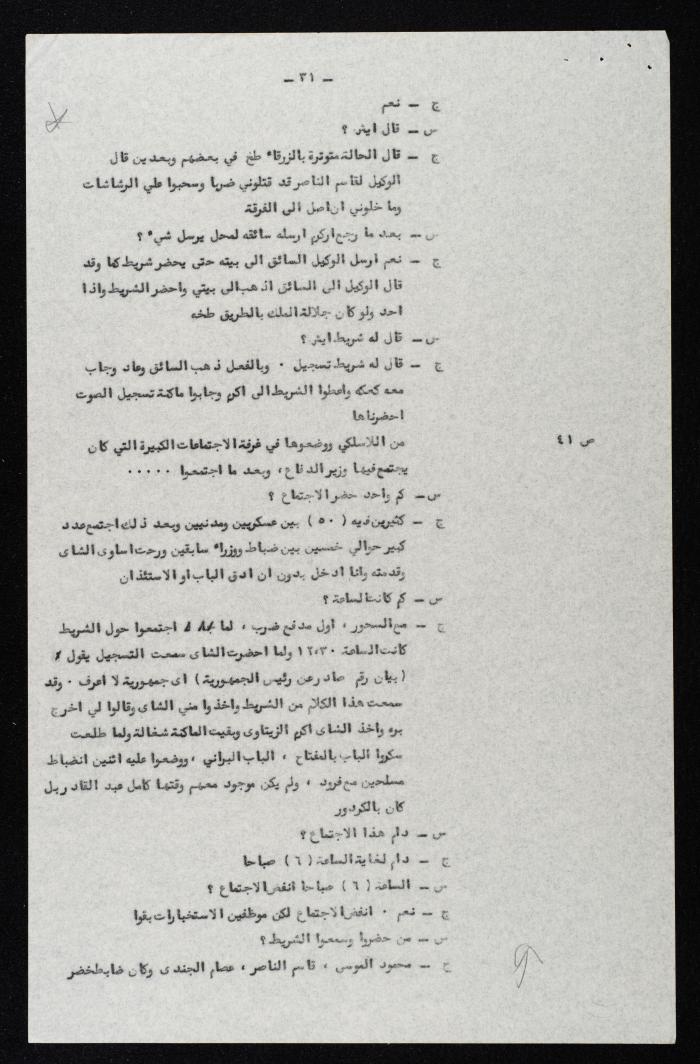 ـ ٣١ ـ
ج ـ نعم
س ـ قال ايش ؟
ج ـ قال الحالة متوترة بالزرقاء طخ في بعضهم وبعدين قال
الوكيل لقاسم الناصر قد قتلوني ضربا وسحبوا علي الرشاشات
وما خلوني ان اصل الى الفرقة
س ـ بعد ما رجع اركم ارسله سائقه لمحل يرسل شيء ؟
ج ـ نعم ارسل الوكيل السائق الى بيته حتى يحضر شريط كما وقد
قال الوكيل الى السائق اذهب الى بيتي واحضر الشريط واذا
احد ولو كان جلالة الملك بالطريق طخه
س ـ قال له شريط ايش ؟
ج ـ قال له شريط تسجيل ٠ وبالفعل ذهب السائق وعاد وجاب
معه كعكه واعطوا الشريط الى اكرم وجابوا ماكنة تسجيل الصوت
احضرناها
من اللاسلكي ووضعوها في غرفة الاجتماعات الكبيرة التي كان
ص ٤١
يجتمع فيها وزير الدفاع ، وبعد ما اجتمعوا ٠٠٠٠٠
س ـ كم واحد حضر الاجتماع ؟
ج ـ كثيرين فيه ( ٥٠ ) بين عسكريين ومدنيين وبعد ذلك اجتمع عدد
كبير حوالي خمسين بين ضباط ووزراء سابقين ورحت اساوى الشاى
وقدمته وانا ادخل بدون ان ادق الباب او الاستئذان
س ـ كم كانت الساعة ؟
ج ـ مع السحور ، اول مدفع ضرب ، لما اجتمعوا حول الشريط
كانت الساعة ١٢،٣٠ ولما احضرت الشاى سمعت التسجيل يقول
( بيان رقم صادر عن رئيس الجمهورية ) اى جمهورية لا اعرف ٠ وقد
سمعت هذا الكلام من الشريط واخذوا مني الشاى وقالوا لي اخرج
بره واخذ الشاى اكرم الزيتاوى وبقيت الماكنة شغالة ولما طلعت
سكروا الباب بالمفتاح ، الباب البراني ، ووضعوا عليه اثنين انضباط
مسلحين مع فرود ، ولم يكن موجود معهم وقتها كامل عبد القادر بل
كان بالكردور
س ـ دام هذا الاجتماع ؟
ج ـ دام لغاية الساعة ( ٦ ) صباحا
س ـ الساعة ( ٦ ) صباحا انفض الاجتماع ؟
ج ـ نعم ٠ انفض الاجتماع لكن موظفين الاستخبارات بقوا
س ـ من حضروا وسمعوا الشريط ؟
ج ـ محمود الموسى ، قاسم الناصر ، عصام الجندى وكان ضابط خضر